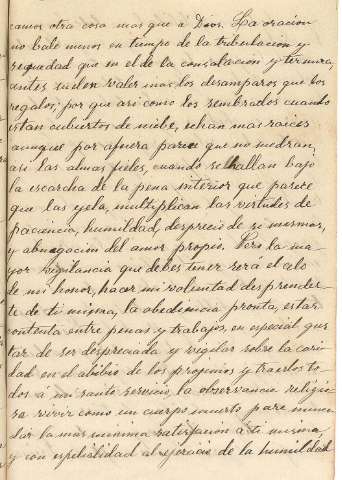 camos otra cosa mas que á Dios. La oracion
no bale menos en tiempo de la tribulacion y
sequedad que en el de la consolación y ternura,
antes suelen valer mas los desamparos que los
regalos; por que asi como los sembrados cuando
estan cubiertos de niebe, echan mas raices
aunque por afuera parece que no medran,
asi las almas fieles, cuando se hallan bajo
la escarcha de la pena interior que parece
que las yela, multiplican las virtudes de
paciencia, humildad, desprecio de si mismas,
y abnegación del amor propio. Pero la ma
yor vigilancia que debes tener será el celo
de mi honor, hacer mi voluntad desprender-
te de ti misma, la obediencia pronta, estar
contenta entre penas y trabajos, en especial gus
tar de ser despreciada y vigilar sobre la cari
dad en el alibio de los progimos y traerlos to
dos á mi santo servicio, la observancia religio
sa vivir como un cuerpo muerto para nunca
dar la mas minima satisfacion a ti misma
y con especialidad al ejercicio de la humildad